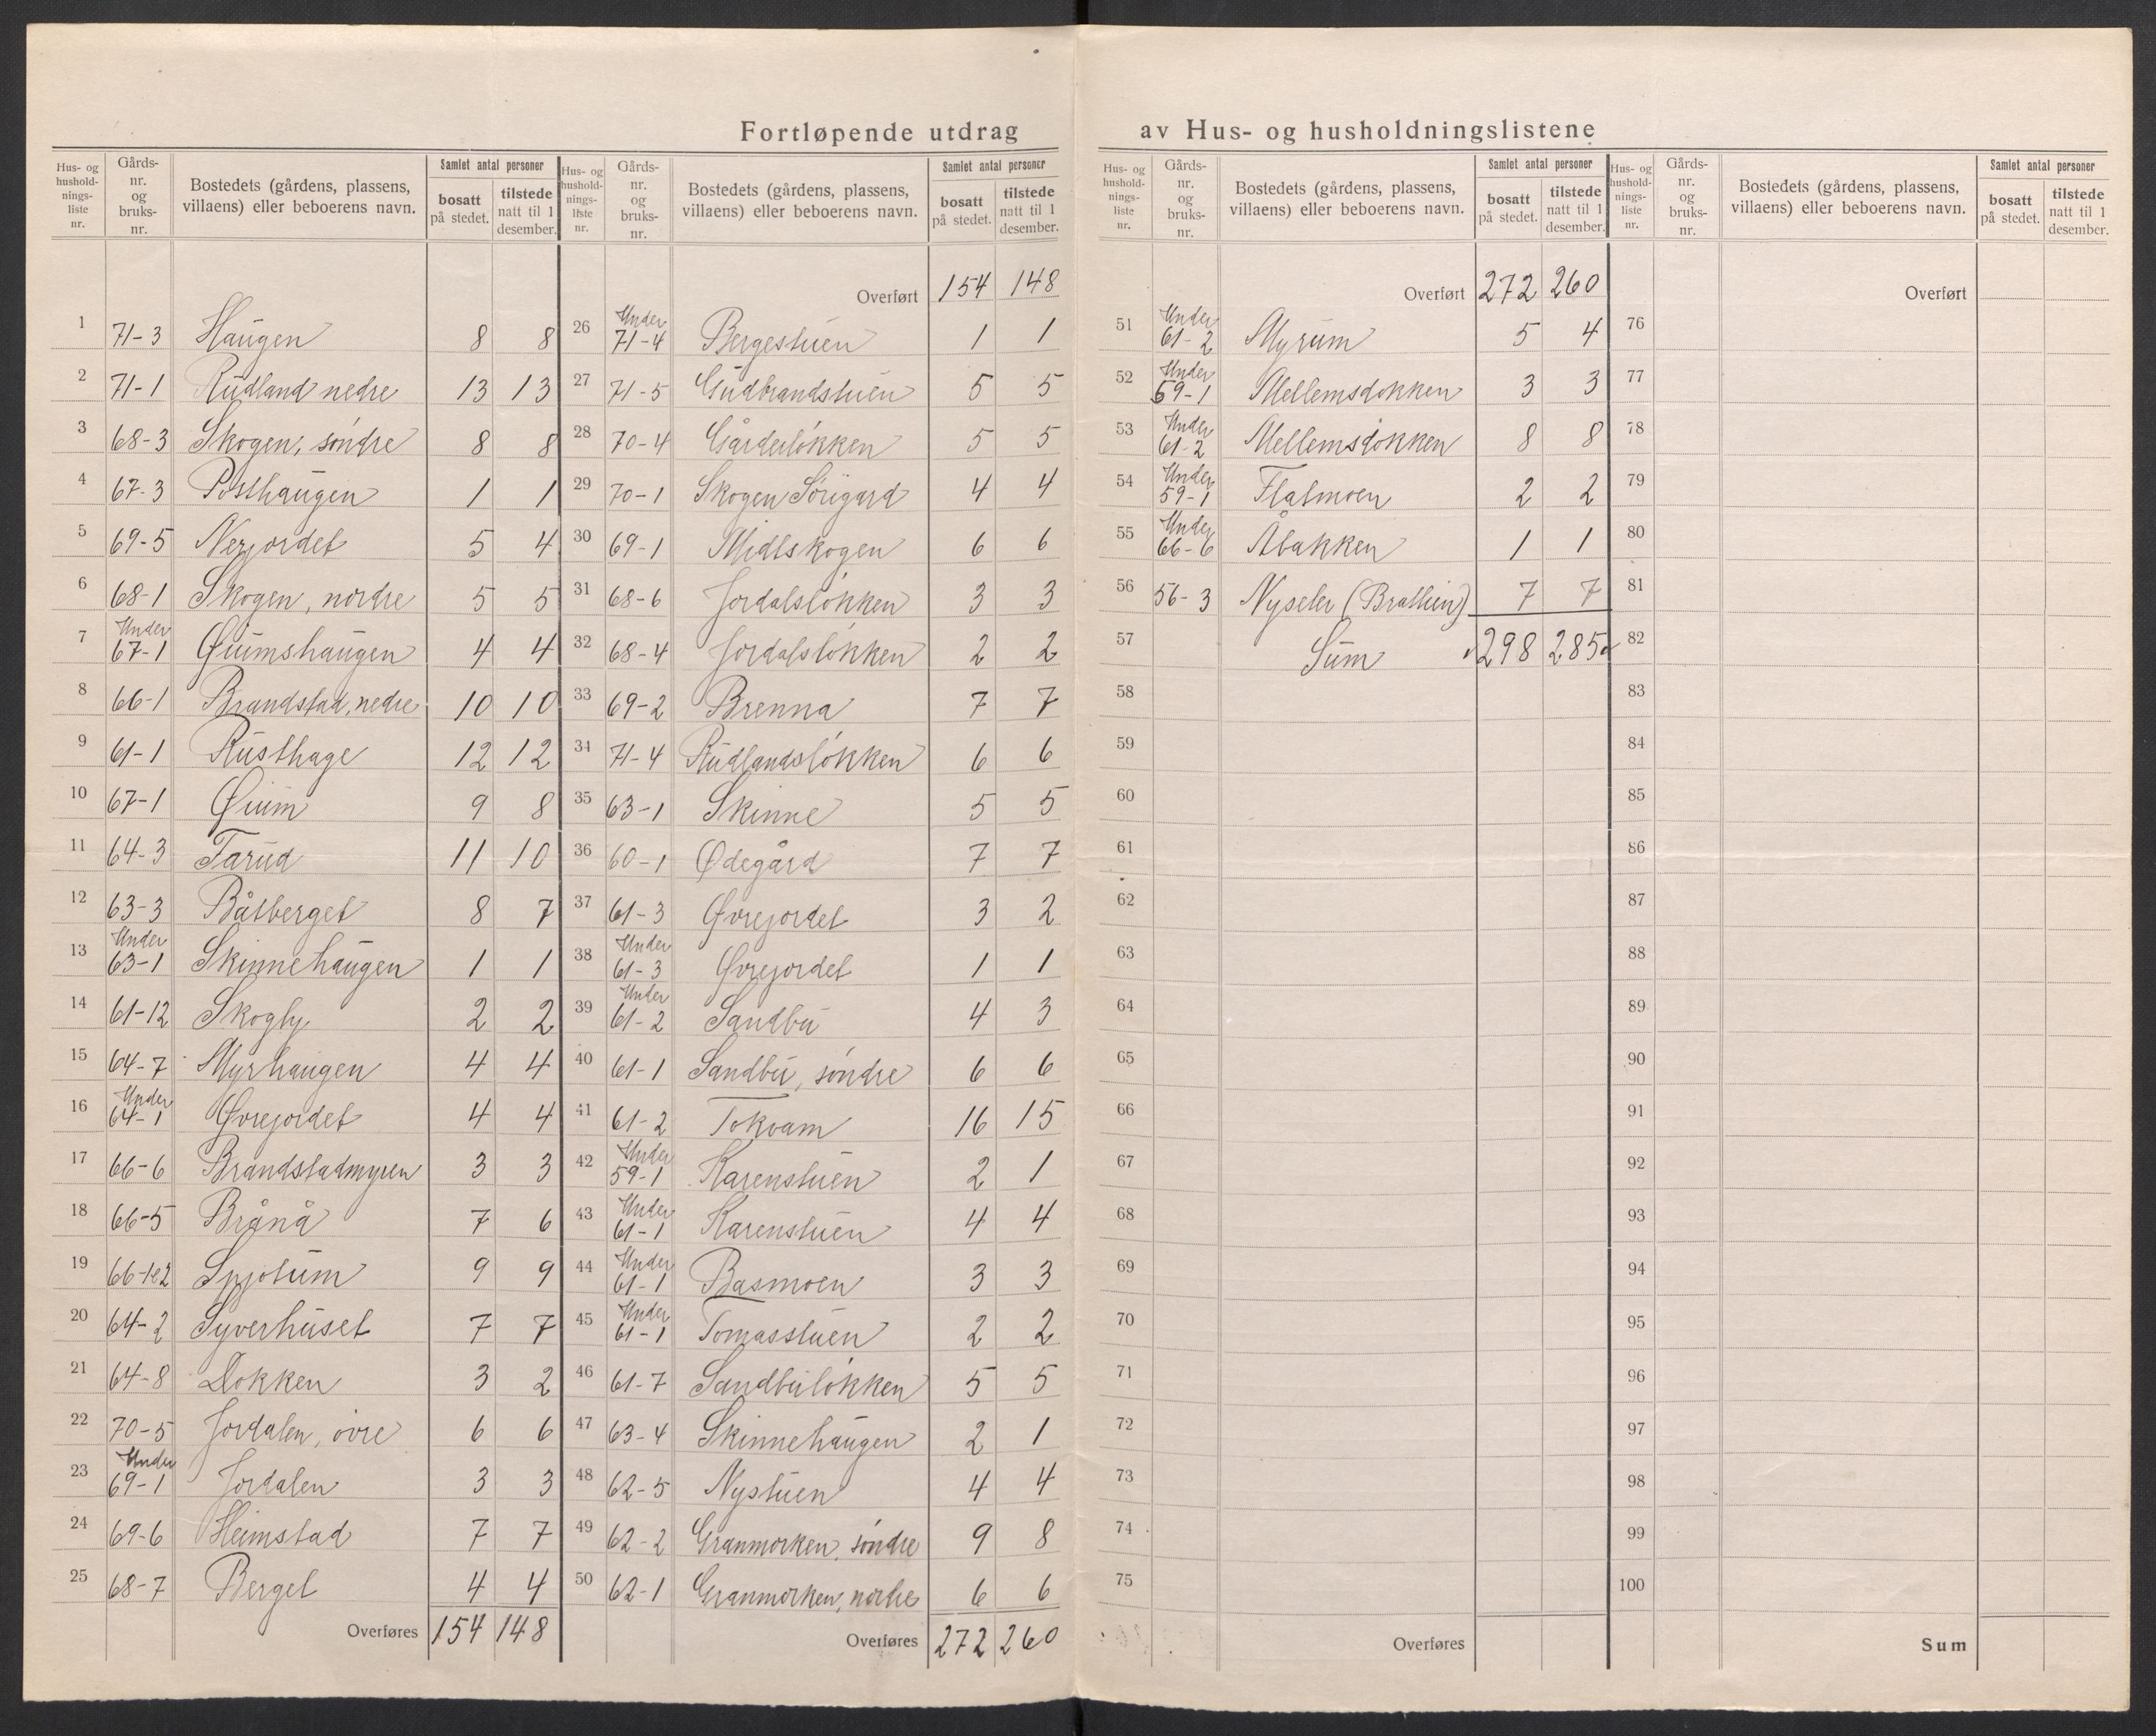 Fortløpende utdrag av Hus- og husholdningslistene
Hus- og husholdnings-liste nr. Gårds-nr. og bruks-nr. Bostedets (gårdens, plassens, villaens) eller beboerens navn. Samlet antal personer bosatt på stedet. tilstede natt til 1 desember.
1 71-3 Haugen 8 8
2 71-1 Rudland nedre 13 13
3 68-3 Skogen, søndre 8 8
4 67-3 Posthaugen 1 1
5 69-5 Nerjordet 5 4
6 68-1 Skogen, nordre 5 5
7 Under 67-1 Øiumshaugen 4 4
8 66-1 Brandstad, nedre 10 10
9 61-1 Rusthage 12 12
10 67-1 Øium 9 8
11 64-3 Tarud 11 10
12 63-3 Båtberget 8 7
13 Under 63-1 Skinnehaugen 1 1
14 61-12 Skogly 2 2
15 64-7 Myrhaugen 4 4
16 Under 64-1 Øvrejordet 4 4
17 66-6 Brandstadmyren 3 3
18 66-5 Brånå 7 6
19 66-1e2 Spjotum 9 9
20 64-2 Syverhuset 7 7
21 64-8 Dokken 3 2
22 70-5 Jordalen, øvre 6 6
23 Under 69-1 Jordalen 3 3
24 69-6 Heimstad 7 7
25 68-7 Berget 4 4
Overføres 154 148
Hus- og husholdnings-liste nr. Gårds-nr. og bruks-nr. Bostedets (gårdens, plassens, villaens) eller beboerens navn. Samlet antal personer bosatt på stedet. tilstede natt til 1 desember.
Overført 154 148
26 Under 71-4 Bergestuen 1 1
27 71-5 Gudbrandstuen 5 5
28 70-4 Gårdeløkken 5 5
29 70-1 Skogen Sørigard 4 4
30 69-1 Midtskogen 6 6
31 68-6 Jordalsløkken 3 3
32 68-4 Jordalsløkken 2 2
33 69-2 Brenna 7 7
34 71-4 Rudlandsløkken 6 6
35 63-1 Skinne 5 5
36 60-1 Ødegård 7 7
37 61-3 Øvrejordet 3 2
38 Under 61-3 Øvrejordet 1 1
39 Under 61-2 Sandbu 4 3
40 61-1 Sandbu, søndre 6 6
41 61-2 Tokvam 16 15
42 Under 59-1 Karenstuen 2 1
43 Under 61-1 Karenstuen 4 4
44 Under 61-1 Basmoen 3 3
45 Under 61-1 Tomasstuen 2 2
46 61-7 Sandbuløkken 5 5
47 63-4 Skinnehaugen 2 1
48 62-5 Nystuen 4 4
49 62-2 Granmorken, søndre 9 8
50 62-1 Granmorken, nordre 6 6
Overføres 272 260
Hus- og husholdnings-liste nr. Gårds-nr. og bruks-nr. Bostedets (gårdens, plassens, villaens) eller beboerens navn. Samlet antal personer bosatt på stedet. tilstede natt til 1 desember.
Overført 272 260
51 Under 61-2 Myrum 5 4
52 Under 59-1 Mellemsdokken 3 3
53 Under 61-2 Mellemsdokken 8 8
54 Under 59-1 Flatmoen 2 2
55 Under 66-6 Åbakken 1 1
56 56-3 Nyseter (Bratlien) 7 7
57 Sum 298 285
58
59
60
61
62
63
64
65
66
67
68
69
70
71
72
73
74
75
Overføres
Hus- og husholdnings-liste nr. Gårds-nr. og bruks-nr. Bostedets (gårdens, plassens, villaens) eller beboerens navn. Samlet antal personer bosatt på stedet. tilstede natt til 1 desember.
Overført
76
77
78
79
80
81
82
83
84
85
86
87
88
89
90
91
92
93
94
95
96
97
98
99
100
Sum